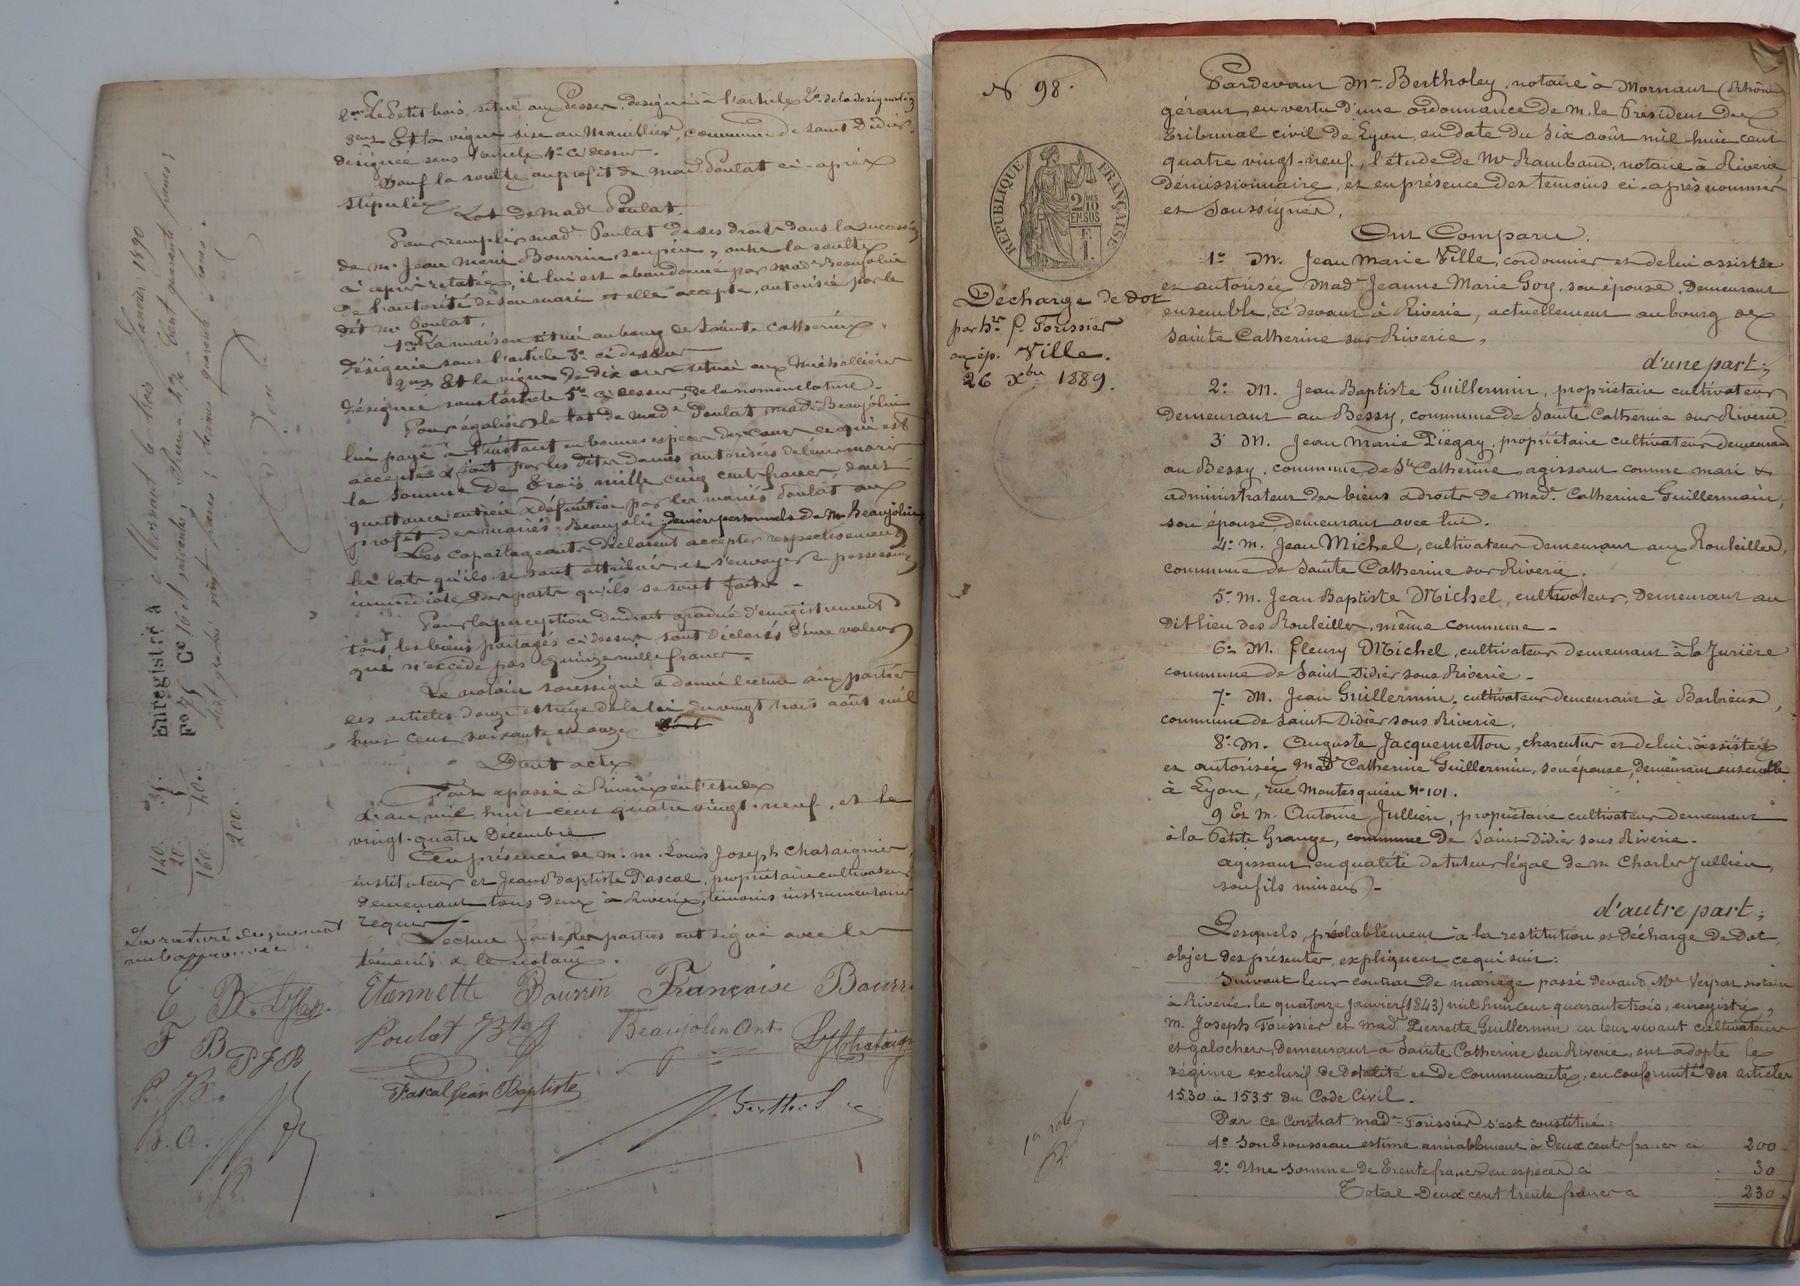 2ent Le Petit bois, situé aux Desser, designé à l'article 2e de la designation
3ent Et la vigne sise au Manillier, commune de Saint Didier
désignée sous l'article 4e ci dessus.
Sauf la soulte au profit de mad. Poulat ci-après
stipulée
Lot de Made Poulat.
Pour remplir made Poulat de ses droits dans la succession
de m. Jean Marie Bourrin, son père, outre la soulte
ci après relatée, il lui est abandonné par made Beaujolin
de l'autorité de son mari et elle accepte, autorisée par le
dit mr Poulat,
1ent La maison située au bourg de Sainte Catherine,
désignée sous l'article 3e ci dessus
2ent Et la vigne de dix ares située aux
désignée sous l'article 5e ci dessus, de la nomenclature.
Pour égaliser le lot de made Poulat, made Beaujolin
lui paye à l'instant en bonnes espèces du cours ce qui est
accepté & fait par les dites dames autorisées de leurs maris
la somme de trois mille cinq cent francs, dont
quittance entière & définitive par les mariés Poulat au
profit des mariés Beaujolin, deniers personnels de Mr Beaujolin
Les copartageants déclarent accepter respectivement
les lots qu'ils se sont attribués, et s'envoyer en possession
immédiate des parts qu'ils se sont faites.
Pour la perception du droit gradué d'enregistrement
tous les biens partagés ci dessus sont déclarés d'une valeur
qui n'excède pas quinze mille francs.
Le notaire soussigné a donné lecture aux parties
des articles douze et treize de la loi du vingt trois août mil
huit cent soixante et onze
Dont acte
Fait & passé à Riverie en l'étude
L'an mil huit cent quatre vingt-neuf, et le
vingt-quatre Décembre
En présence de m. m. Louis Joseph Chataignier,
instituteur et Jean Baptiste Pascal, propriétaire cultivateur
demeurant tous deux à Riverie, témoins instrumentaires
requis
Lecture faite, les parties ont signé avec les
témoins & le notaire.
Etiennette Bourrin Françoise Bourrin
Poulat Beaujolin Ant LJ Chataignier
Pascal Jean Baptiste
E B.
F B PJB
P. JB.
B. A.
Enregistré à Mornant le trois Janvier 1890
Fo 75 Ce 16 et suivantes
140.
20.
160. 40.
200.
No 98.
RÉPUBLIQUE FRANÇAISE
2/10 EN SUS
1 F.
Décharge de dot
par hrs P. Toissier
au ép. Ville.
26 Xbre 1889.
1er rôle
B
Pardevant Mre Bertholey, notaire à Mornant (Rhône)
gérant, en vertu d'une ordonnance de m. le Président du
tribunal civil de Lyon, en date du six août mil huit cent
quatre vingt-neuf, l'étude de Me Rambaud, notaire à Riverie
démissionnaire, et en présence des témoins ci-après nommés
et soussignés.
Ont Comparu.
1e M. Jean Marie Ville, cordonnier et de lui assistée
et autorisée Made Jeanne Marie Goy, son épouse, demeurant
ensemble, ci devant à Riverie, actuellement au bourg de
Sainte Catherine sur Riverie,
d'une part;
2e M. Jean Baptiste Guillermin, propriétaire cultivateur
demeurant au Bessy, commune de Sainte Catherine sur Riverie.
3e M. Jean Marie Piégay, propriétaire cultivateur demeurant
au Bessy, commune de Ste Catherine, agissant comme mari &
administrateur des biens & droits de made Catherine Guillermin,
son épouse demeurant avec lui.
4e m. Jean Michel, cultivateur demeurant aux Rouleiller,
commune de Sainte Catherine sur Riverie.
5e m. Jean Baptiste Michel, cultivateur, demeurant au
dit lieu des Rouleiller, même commune.
6e M. Fleury Michel, cultivateur demeurant à la Jurière
commune de Saint Didier sous Riverie.
7e M. Jean Guillermin, cultivateur demeurant à Barbieux,
commune de Saint Didier sous Riverie.
8e M. Auguste Jacquemetton, charcutier et de lui assistée
et autorisée Made Catherine Guillermin, son épouse, demeurant ensemble
à Lyon, rue Montesquieu No 101.
9 Et M. Antoine Jullien, propriétaire cultivateur demeurant
à la Petite Grange, commune de Saint Didier sous Riverie.
agissant en qualité de tuteur légal de m Charles Jullien,
son fils mineur.
d'autre part;
Lesquels, préalablement à la restitution et décharge de dot,
objet des présentes, expliquent ce qui suit:
Suivant leur contrat de mariage passé devant Me Veyrat notaire
à Riverie le quatorze Janvier (1843) mil huit cent quarante trois, enregistré,
m. Joseph Toissier et made Pierrette Guillermin en leur vivant cultivateur
et galocher, demeurant à Sainte Catherine sur Riverie, ont adopté le
régime exclusif de dotalité et de communauté, en conformité des articles
1530 à 1535 du Code Civil.
Par ce contrat made Toissier s'est constitué:
1e Son trousseau estimé amiablement à deux cents francs ci 200
2e Une somme de trente francs en espèces ci 30
Total Deux cent trente francs ci 230